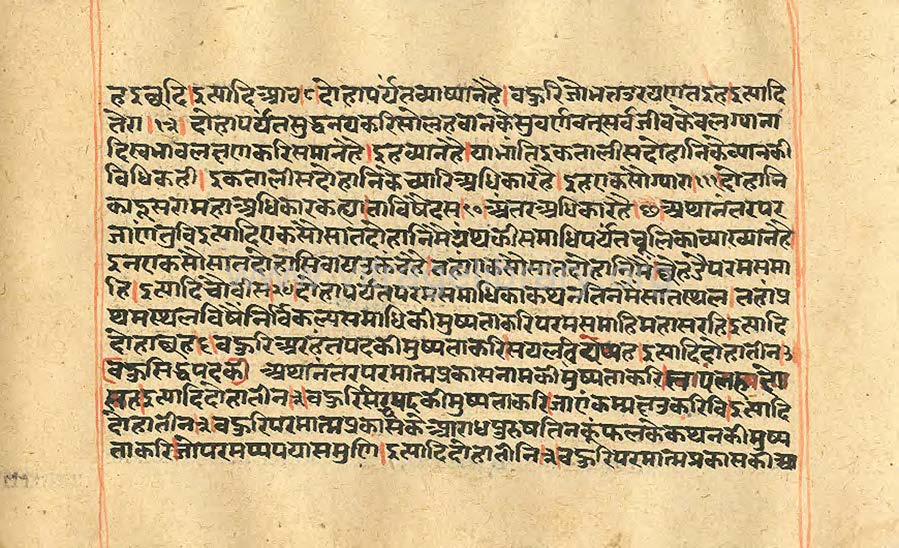 हइ बुदि। इत्यादि आठ ८ दोहा पर्यंत व्याष्यान है। बहुरि जो भत्तउ रयणत्तइह। इत्यादि
तेरा।१३। दोहा पर्यंत सुद्ध नय करि सोलहवान के सुवर्णवत् सर्व जीव केवलग्याना
दि स्वभाव लक्षण करि समान है। इह व्यान है। या भांति इकतालीस दोहानि के व्यान की
विधि कही। इकतालीस दोहानि के च्यारि अधिकार है। इह एक सो ग्यारा।१११। दोहानि
का दूसरा महा अधिकार कह्या। ता विषै दस १० अंतर अधिकार है। अथानंतर पर
जाणंतु वि इत्यादि एक सो सात दोहानि मै ग्रंथ की समाधि पर्यंत चूलिका व्याख्यान है
इन एक सो सात दोहा सिवाय
हि। इत्यादि चौवीस २४ दोहा पर्यंत परम समाधि का कथन तिन मै सात स्थल। तहां प्र
थम स्थल विषै निर्विकल्प समाधि की मुष्यता करि परम समाहि महासरहि। इत्यादि
दोहा छह ६। बहुरि अरहंत पद की मुष्यता करि। सयल वियप्पह। इत्यादि दोहा तीन ३
बहु सिद्ध पद की अथानंतर परमात्मप्रकास नाम की मुष्यता करि।
इत्यादि दोहा तीन ३ बहुरि सिद्ध पद की मुष्यता करि। जाणे कम्मक्खउ करि वि। इत्यादि
दोहा तीन ३। बहुरि परमात्मप्रकास के आराध पुरुष तिन कूं फल के कथन की मुष्य
ता करि। जो परमप्पपयासमुणि। इत्यादि दोहा तीनि ३। बहुरि परमात्मप्रकास की आ